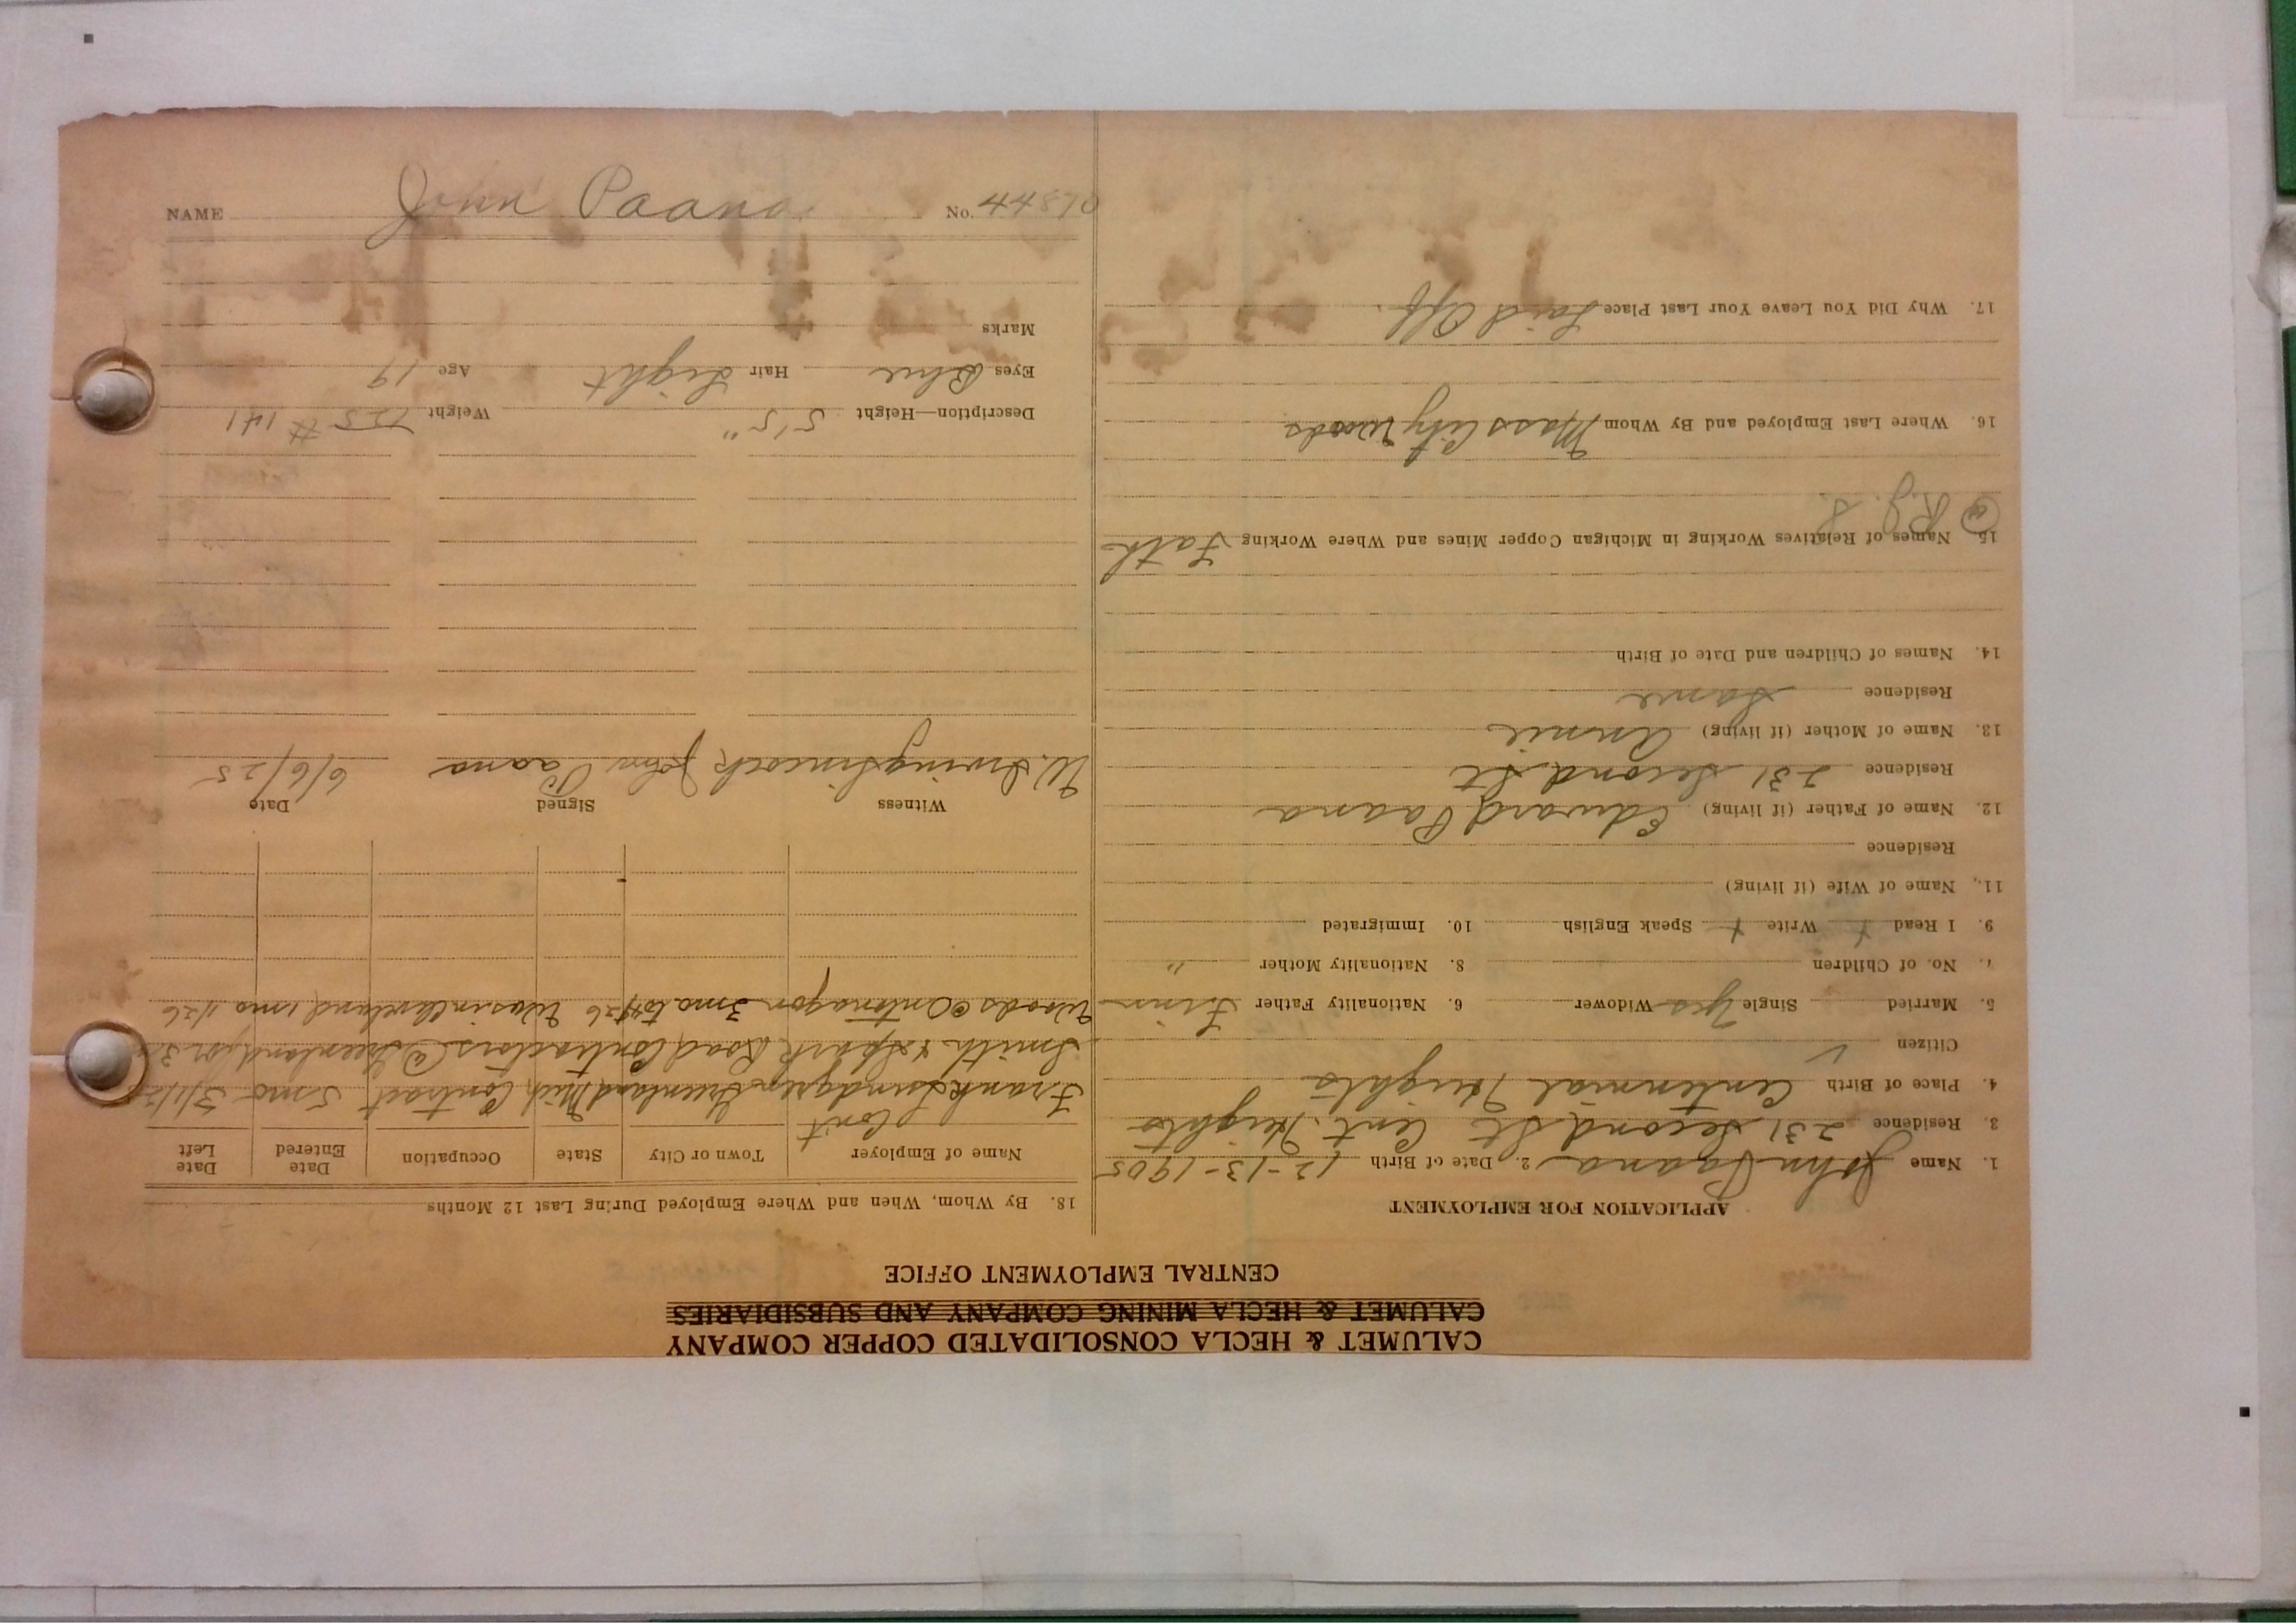 CALUMET & HECLA CONSOLIDATED COPPER COMPANY
CALUMET & HECLA MINING COMPANY AND SUBSIDIARIES
CENTRAL EMPLOYMENT OFFICE
APPLICATION FOR EMPLOYMENT
1. Name John Paana 2. Date of Birth 12-13-1905
3. Residence 231 Second St Cent. Heights
4. Place of Birth Centennial Heights
Citizen ✓
5. Married Single Yes Widower 6. Nationality Father Finn
7. No. of Children 8. Nationality Mother "
9. I Read + Write + Speak English 10. Immigrated
11. Name of Wife (if living)
Residence
12. Name of Father (if living) Edward Paana
Residence 231 Second St
13. Name of Mother (if living) Annie
Residence Same
14. Names of Children and Date of Birth
15. Names of Relatives Working in Michigan Copper Mines and Where Working Fath
@ R.J.S.
16. Where Last Employed and By Whom Mass City Woods
17. Why Did You Leave Your Last Place Laid Off.
18. By Whom, When and Where Employed During Last 12 Months
Name of Employer Town or City State Occupation Date Entered Date Left
Cont
Frank Lundgren Greenland Mich Contract 5 mo 3/1/25
Smith & Spark Road Contractors @ Greenland for
Woods @ Ontonagon 3 mo to 4/26 Was in Cleveland 1 mo 1/26
Witness Signed Date
W. Irving Simcock John Paana 6/6/25
Description—Height 5'5" Weight 125 # 141
Eyes Blue Hair Light Age 19
Marks
NAME John Paana No. 44870